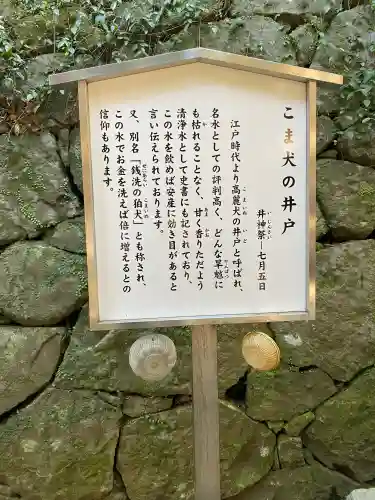 こま犬の井戸
いしんさい
井神祭―七月五日
こまいぬ いど
江戸時代より高麗犬の井戸と呼ばれ、
かんばつ
名水としての評判高く、どんな旱魃に
か あま かお
も枯れることなく、甘く香りただよう
清浄水として史書にも記されており、
この水を飲めば安産に効き目があると
言い伝えられております。
ぜにあらい こまいぬ
又、別名「銭洗の狛犬」とも称され、
この水でお金を洗えば倍に増えるとの
信仰もあります。